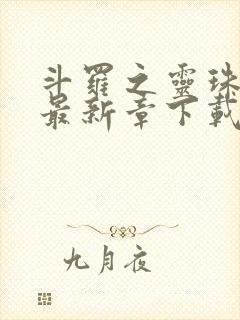 斗羅之靈珠
最新章下載
九月夜